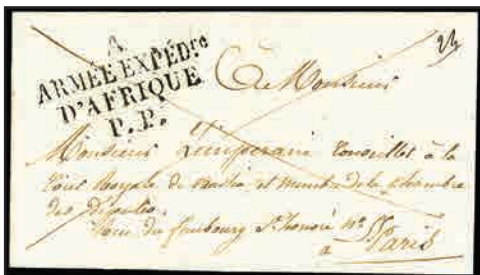 A
ARMÉE EXPÉD.re
D'AFRIQUE
P.P.
A Monsieur
Monsieur Lempérani Conseiller à la
Cour Royale de Bastia et membre de la Chambre
des Députés.
du faubourg St honoré No
à Paris